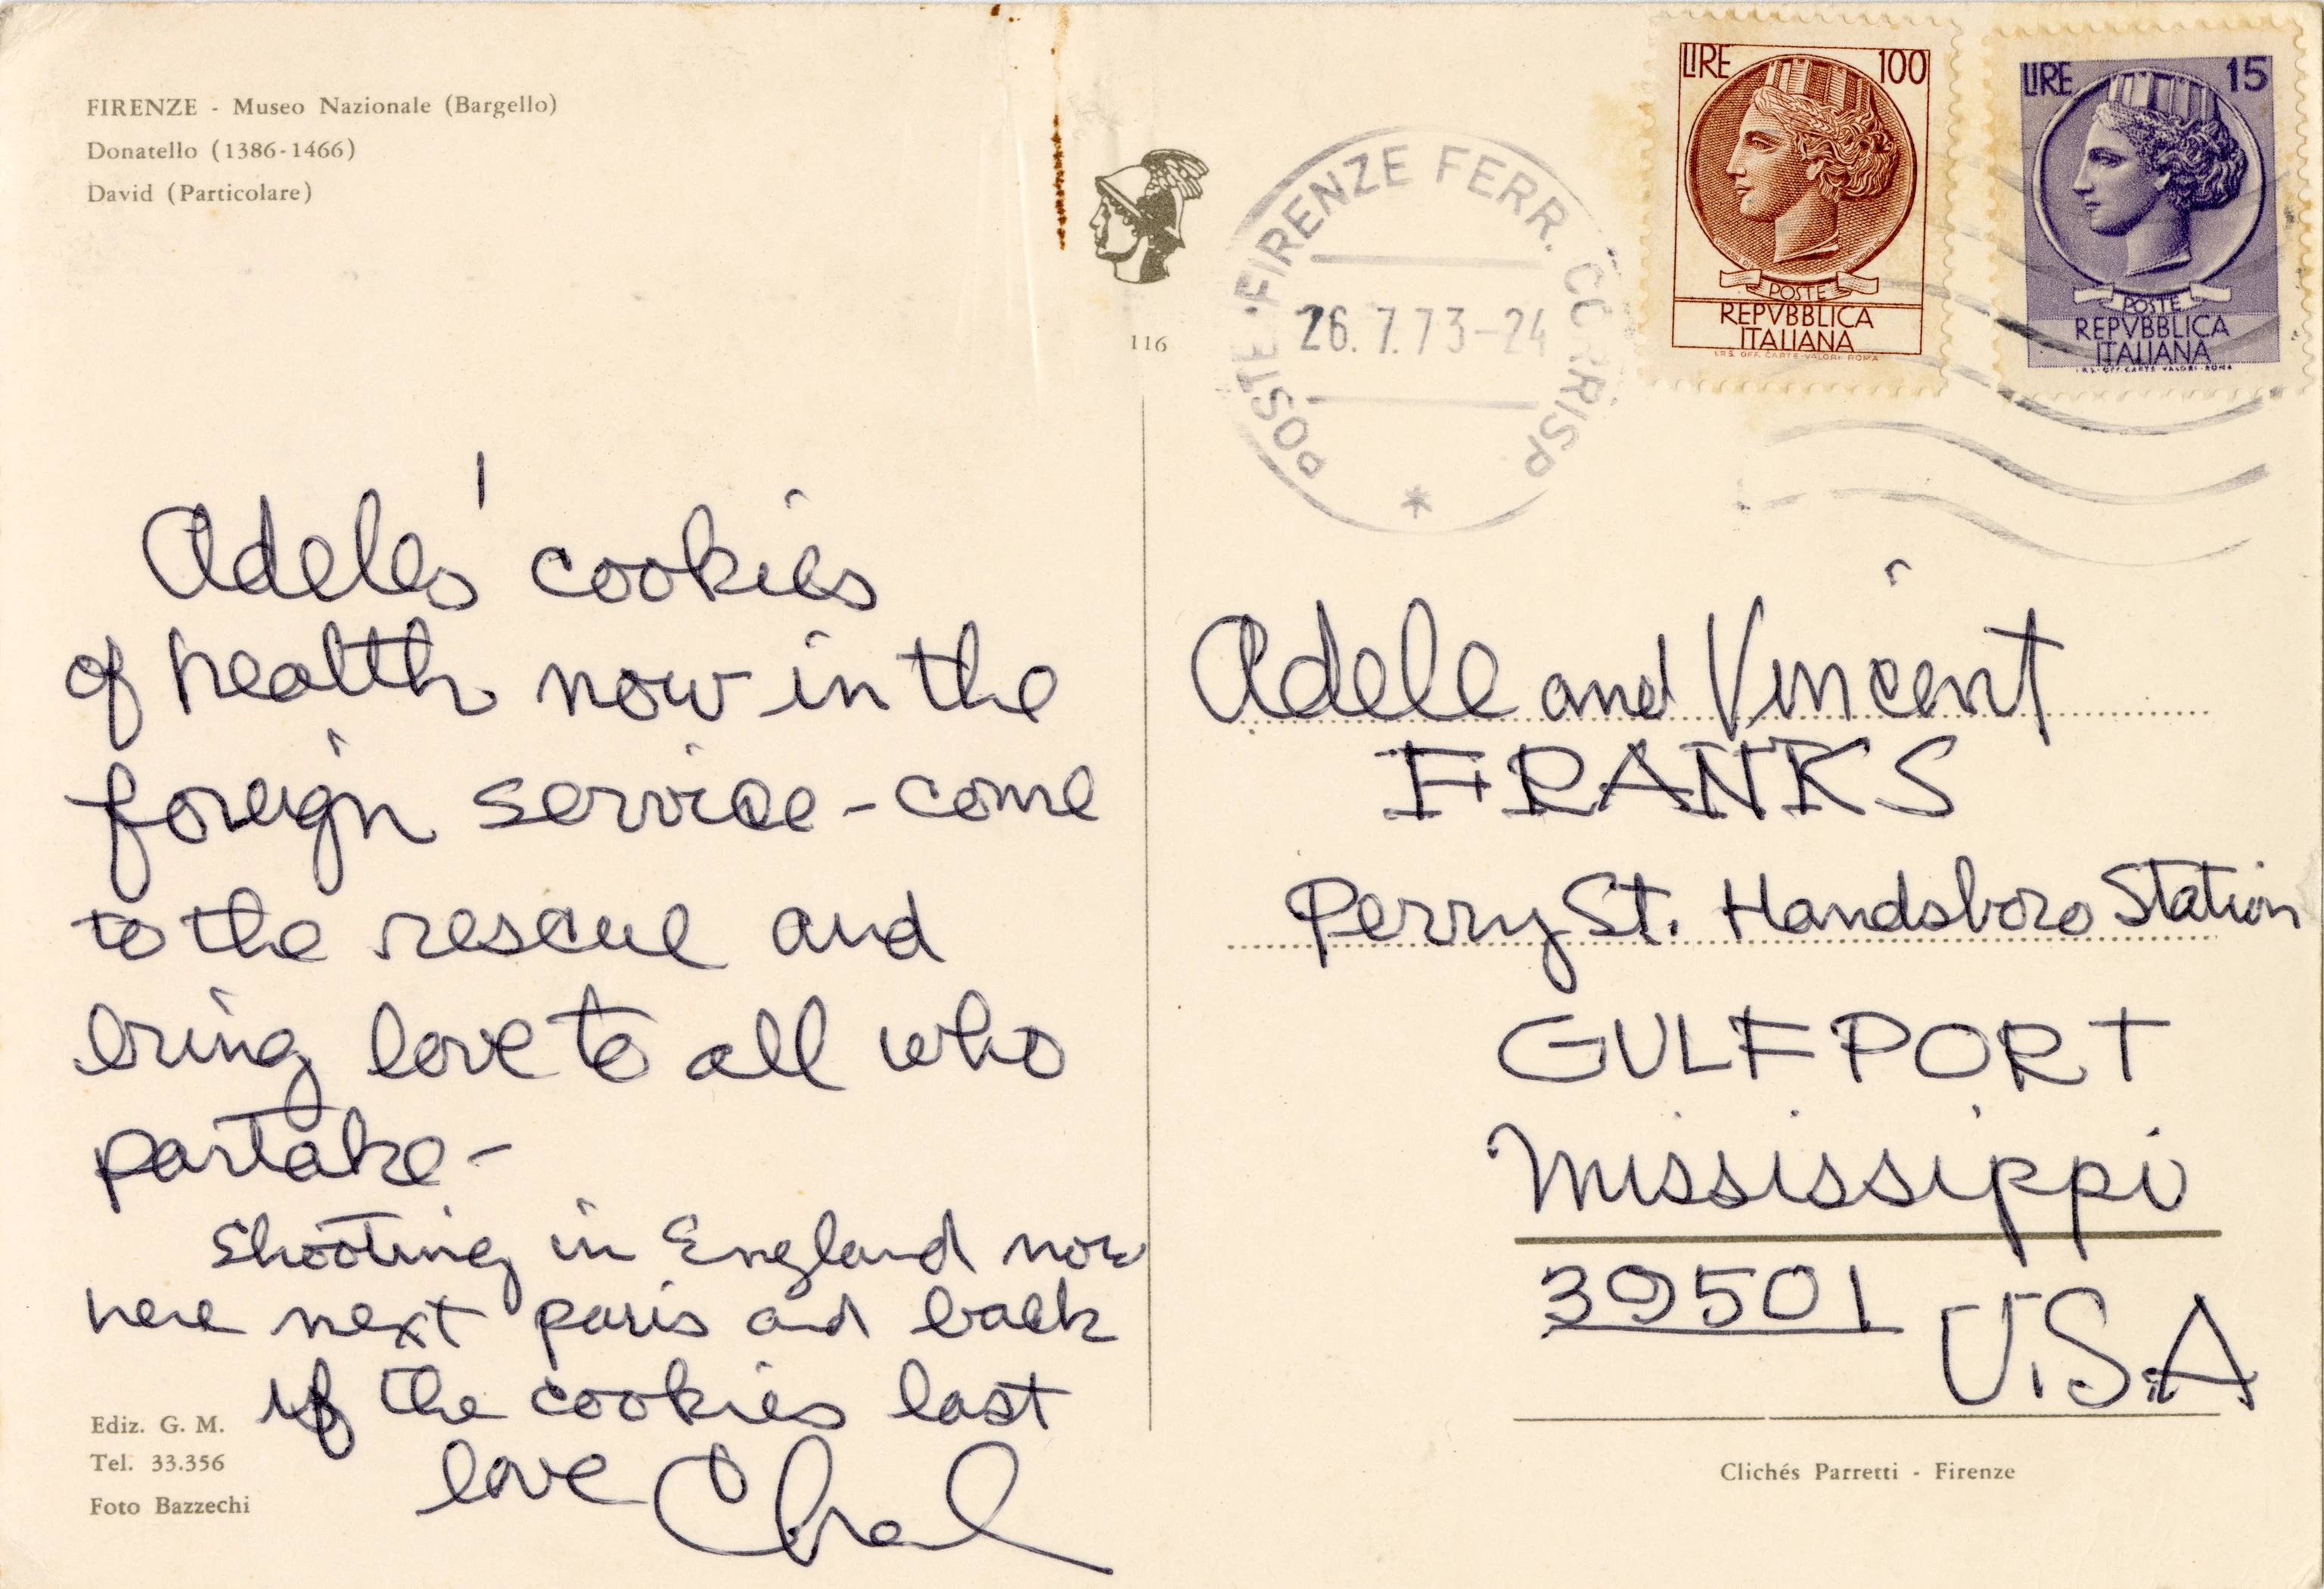 FIRENZE - Museo Nazionale (Bargello)
Donatello (1386-1466)
David (Particolare)
116
POSTE • FIRENZE FERR. CORRISP
26.7.73-24
LIRE 100
POSTE
REPVBBLICA
ITALIANA
I.P.S. OFF. CARTE-VALORI-ROMA
LIRE 15
POSTE
REPVBBLICA
ITALIANA
I.P.S. OFF. CARTE-VALORI-ROMA
Adeles' cookies
of health now in the
foreign service - come
to the rescue and
bring love to all who
partake -
Shooting in England now
here next paris and back
if the cookies last
love
Adele and Vincent
FRANKS
Perry St. Handsboro Station
GULFPORT
Mississippi
39501 U.S.A
Ediz. G. M.
Tel. 33.356
Foto Bazzechi
Clichés Parretti - Firenze